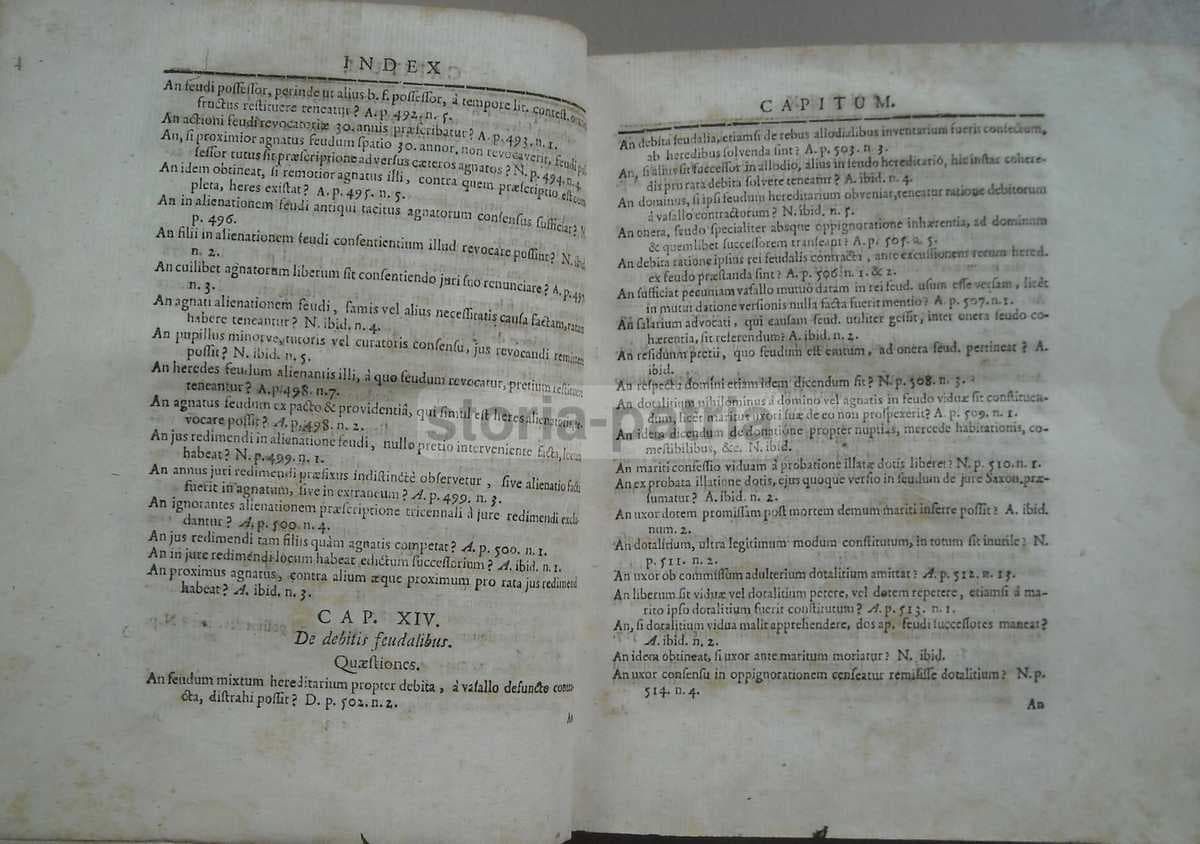 INDEX
An feudi possessor, perinde ut alius b. f. possessor, à tempore lit. contest.
fructus restituere teneatur? A. p. 492. n. 5.
An actioni feudi revocatoriæ 30. annis præscribatur? A. p. 493. n. 1.
An, si proximior agnatus feudum spatio 30. annor. non revocaverit, feudi
sessor tutus sit præscriptione adversus cæteros agnatos? N. p. 494. n. 4.
An idem obtineat, si remotior agnatus illi, contra quem præscriptio est com
pleta, heres existat? A. p. 495. n. 5.
An in alienationem feudi antiqui tacitus agnatorum consensus sufficiat?
p. 496.
An filii in alienationem feudi consentientium illud revocare possint? N. ibid
n. 2.
An cuilibet agnatorum liberum sit consentiendo juri suo renunciare? A. p. 497
n. 3.
An agnati alienationem feudi, famis vel alius necessitatis causa factam, ratam
habere teneantur? N. ibid. n. 4.
An pupillus minorve, tutoris vel curatoris consensu, jus revocandi remittere
possit? N. ibid. n. 5.
An heredes feudum alienantis illi, à quo feudum revocatur, pretium restituere
teneantur? A. p. 498. n. 7.
An agnatus feudum ex pacto & providentia, qui simul est heres alienatoris,
vocare possit? A. p. 498. n. 2.
An jus redimendi in alienatione feudi, nullo pretio interveniente facta, locum
habeat? N. p. 499. n. 1.
An annus juri redimendi præfixus indistinctè observetur, sive alienatio facta
fuerit in agnatum, sive in extraneum? A. p. 499. n. 3.
An ignorantes alienationem præscriptione tricennali à jure redimendi exclu
dantur? A. p. 500. n. 4.
An jus redimendi tam filiis quàm agnatis competat? A. p. 500. n. 1.
An in jure redimendi locum habeat edictum successorium? A. ibid. n. 1.
An proximus agnatus, contra alium æque proximum pro rata jus redimendi
habeat? A. ibid. n. 3.
CAP. XIV.
De debitis feudalibus.
Quæstiones.
An feudum mixtum hereditarium propter debita, à vasallo defuncto contra
cta, distrahi possit? D. p. 502. n. 2.
CAPITUM.
An debita feudalia, etiamsi de rebus allodialibus inventarium fuerit confectum,
ab heredibus solvenda sint? A. p. 503. n. 3.
An, si alius sit successor in allodio, alius in feudo hereditario, hic instar cohere-
dis pro rata debita solvere teneatur? A. ibid. n. 4.
An dominus, si ipsi feudum hereditarium obveniat, teneatur ratione debitorum
à vasallo contractorum? N. ibid. n. 5.
An onera, feudo specialiter absque oppignoratione inhærentia, ad dominum
& quemlibet successorem transeant? A. p. 505. n. 5.
An debita ratione ipsius rei feudalis contracta, ante excussionem rerum hered.
ex feudo præstanda sint? A. p. 506. n. 1. & 2.
An sufficiat pecuniam vasallo mutuò datam in rei feud. usum esse versam, licèt
in mutui datione versionis nulla facta fuerit mentio? A. p. 507. n. 1.
An salarium advocati, qui causam feud. utiliter gessit, inter onera feudo co-
hærentia, sit referendum? A. ibid. n. 2.
An residuum pretii, quo feudum est emtum, ad onera feud. pertineat? A.
ibid.
An respectu domini etiam idem dicendum sit? N. p. 508. n. 3.
An dotalitium nihilominus à domino vel agnatis in feudo viduæ sit constituen-
dum, licèt maritus uxori suæ de eo non prospexerit? A. p. 509. n. 1.
An idem dicendum de donatione propter nuptias, mercede habitationis, co-
mestibilibus, &c. N. ibid.
An mariti confessio viduam à probatione illatæ dotis liberet? N. p. 510. n. 1.
An ex probata illatione dotis, ejus quoque versio in feudum de jure Saxon. præ-
sumatur? A. ibid. n. 2.
An uxor dotem promissam post mortem demum mariti inferre possit? A. ibid.
num. 2.
An dotalitium, ultra legitimum modum constitutum, in totum sit inutile? N.
p. 511. n. 2.
An uxor ob commissum adulterium dotalitium amittat? A. p. 512. n. 13.
An liberum sit viduæ vel dotalitium petere, vel dotem repetere, etiamsi à ma-
rito ipso dotalitium fuerit constitutum? A. p. 513. n. 1.
An, si dotalitium vidua malit apprehendere, dos ap. feudi successores maneat?
A. ibid. n. 2.
An idem obtineat, si uxor ante maritum moriatur? N. ibid.
An uxor consensu in oppignorationem censeatur remisisse dotalitium? N. p.
514. n. 4.
An